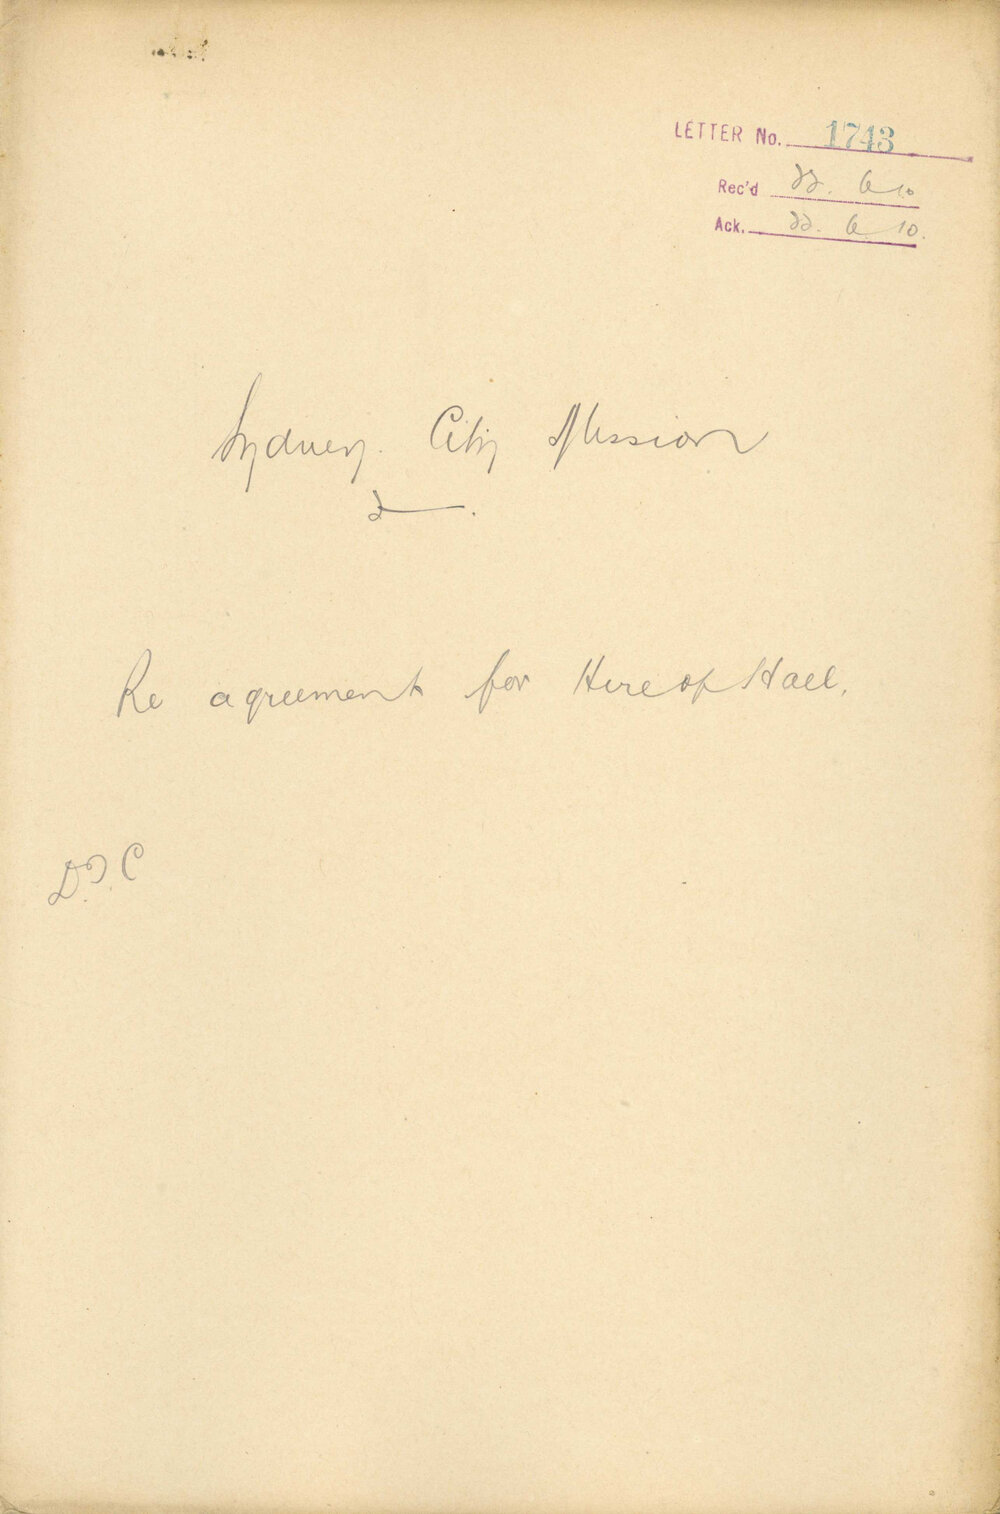 LETTER No. 1743
Rec'd 22. 6 10
Ack. 22. 6 10.
Sydney City Mission
Re agreement for Hire of Hall.